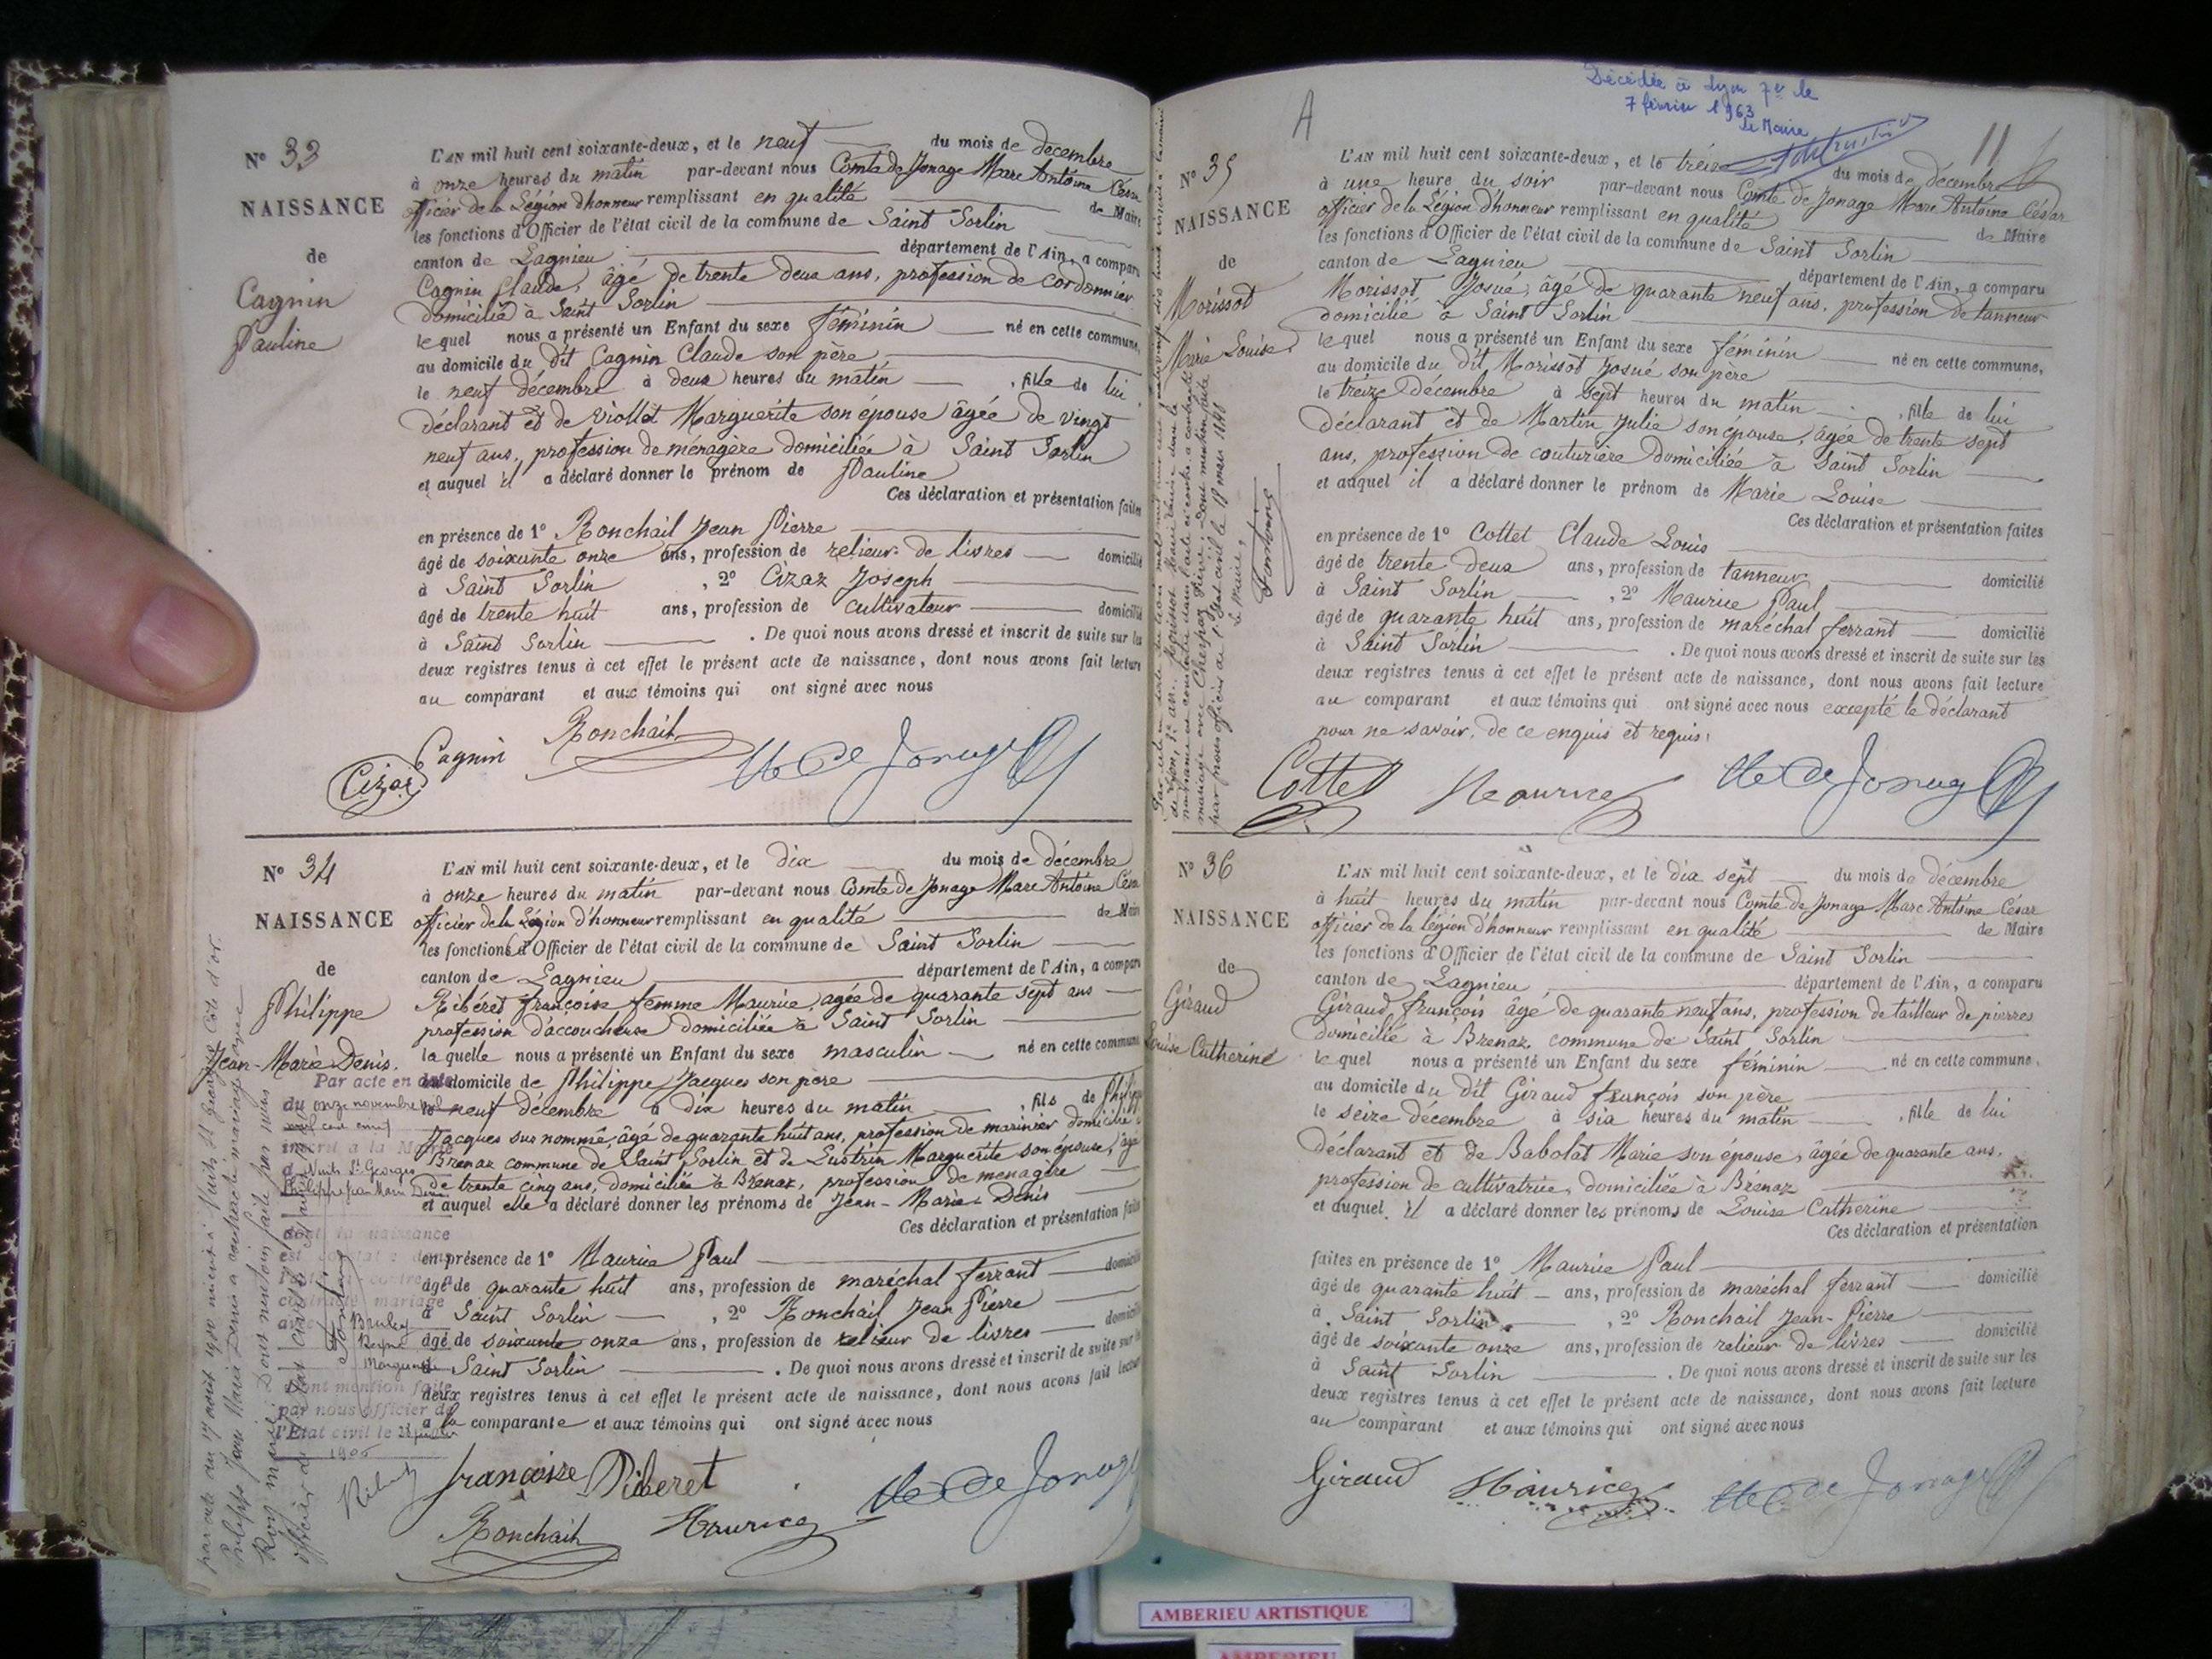 Nº 33
NAISSANCE
de
Cagnin
Pauline
L'AN mil huit cent soixante-deux, et le neuf du mois de décembre
à onze heures du matin par-devant nous Comte de Jonage Marc Antoine César
officier de la Légion d'honneur remplissant en qualité de Maire
les fonctions d'Officier de l'état civil de la commune de Saint Sorlin
canton de Lagnieu département de l'Ain, a comparu
Cagnin Claude, âgé de trente deux ans, profession de cordonnier
domicilié à Saint Sorlin
lequel nous a présenté un Enfant du sexe féminin né en cette commune,
au domicile du dit Cagnin Claude son père
le neuf décembre à deux heures du matin , fille de lui
déclarant et de Viollet Marguerite son épouse âgée de vingt
neuf ans, profession de ménagère domiciliée à Saint Sorlin
et auquel il a déclaré donner le prénom de Pauline
Ces déclaration et présentation faites
en présence de 1º Ronchail Jean Pierre
âgé de soixante onze ans, profession de relieur de livres domicilié
à Saint Sorlin , 2º Cizaz Joseph
âgé de trente huit ans, profession de cultivateur domicilié
à Saint Sorlin . De quoi nous avons dressé et inscrit de suite sur les
deux registres tenus à cet effet le présent acte de naissance, dont nous avons fait lecture
au comparant et aux témoins qui ont signé avec nous
Cizaz Cagnin Ronchail Cte de Jonage
Nº 34
NAISSANCE
de
Philippe
Jean-Marie-Denis.
L'AN mil huit cent soixante-deux, et le dix du mois de décembre
à onze heures du matin par-devant nous Comte de Jonage Marc Antoine César
officier de la Légion d'honneur remplissant en qualité de Maire
les fonctions d'Officier de l'état civil de la commune de Saint Sorlin
canton de Lagnieu département de l'Ain, a comparu
Ribéret Françoise femme Maurice, agée de quarante sept ans
profession d'accoucheuse domiciliée à Saint Sorlin
laquelle nous a présenté un Enfant du sexe masculin né en cette commune
au domicile de Philippe Jacques son père
le neuf décembre à dix heures du matin , fils de Philippe
Jacques sur nommé, âgé de quarante huit ans, profession de marinier domicilié à
Brenaz commune de Saint Sorlin et de Lustrin Marguerite son épouse, âgé
de trente cinq ans, domiciliée à Brenaz, profession de menagère
et auquel elle a déclaré donner les prénoms de Jean-Marie-Denis
Ces déclaration et présentation faites
en présence de 1º Maurice Paul
âgé de quarante huit ans, profession de maréchal ferrant domicilié
à Saint Sorlin , 2º Ronchail Jean Pierre
âgé de soixante onze ans, profession de relieur de livres domicilié
à Saint Sorlin . De quoi nous avons dressé et inscrit de suite sur les
deux registres tenus à cet effet le présent acte de naissance, dont nous avons fait lecture
a la comparante et aux témoins qui ont signé avec nous
françoise Riberet Cte de Jonage
Ronchail Maurice
Par acte en date
du onze novembre mil
neuf cent cinq
inscrit à la Mairie
à Nuits St Georges
Philippe Jean Marie Denis
dont la naissance
est constatée dans
l'acte ci-contre a
contracté mariage
avec Bruley
Reine
Marguerite
dont mention faite
par nous officier de
l'Etat civil le
1906
par acte du 17 août 1920 Nuits St Georges Côte d'or
Philippe Jean Marie Denis a contracté mariage avec
Dont mention faite par nous
officier de l'état civil
Décédée à Lyon 7e le
7 février 1963
Le Maire
A
11
Nº 35
NAISSANCE
de
Morissot
Marie Louise.
L'AN mil huit cent soixante-deux, et le treize du mois de décembre
à une heure du soir par-devant nous Comte de Jonage Marc Antoine César
officier de la Légion d'honneur remplissant en qualité de Maire
les fonctions d'Officier de l'état civil de la commune de Saint Sorlin
canton de Lagnieu département de l'Ain, a comparu
Morissot Josué, âgé de quarante neuf ans, profession de tanneur
domicilié à Saint Sorlin
lequel nous a présenté un Enfant du sexe féminin né en cette commune,
au domicile du dit Morissot Josué son père
le treize décembre à sept heures du matin , fille de lui
déclarant et de Martin Julie son épouse, âgée de trente sept
ans, profession de couturière domiciliée à Saint Sorlin
et auquel il a déclaré donner le prénom de Marie Louise
Ces déclaration et présentation faites
en présence de 1º Cottet Claude Louis
âgé de trente deux ans, profession de tanneur domicilié
à Saint Sorlin , 2º Maurice Paul
âgé de quarante huit ans, profession de maréchal ferrant domicilié
à Saint Sorlin . De quoi nous avons dressé et inscrit de suite sur les
deux registres tenus à cet effet le présent acte de naissance, dont nous avons fait lecture
au comparant et aux témoins qui ont signé avec nous excepté le déclarant
pour ne savoir, de ce enquis et requis.
Cottet Maurice Cte de Jonage
Nº 36
NAISSANCE
de
Giraud
Louise Catherine
L'AN mil huit cent soixante-deux, et le dix sept du mois de décembre
à huit heures du matin par-devant nous Comte de Jonage Marc Antoine César
officier de la légion d'honneur remplissant en qualité de Maire
les fonctions d'Officier de l'état civil de la commune de Saint Sorlin
canton de Lagnieu département de l'Ain, a comparu
Giraud françois âgé de quarante neuf ans, profession de tailleur de pierres
domicilié à Brenaz commune de Saint Sorlin
lequel nous a présenté un Enfant du sexe féminin né en cette commune,
au domicile du dit Giraud françois son père
le seize décembre à six heures du matin , fille de lui
déclarant et de Babolat Marie son épouse, âgée de quarante ans,
profession de cultivatrice, domiciliée à Brénaz
et auquel il a déclaré donner les prénoms de Louise Catherine
Ces déclaration et présentation
faites en présence de 1º Maurice Paul
âgé de quarante huit ans, profession de maréchal ferrant domicilié
à Saint Sorlin , 2º Ronchail Jean-Pierre
âgé de soixante onze ans, profession de relieur de livres domicilié
à Saint Sorlin . De quoi nous avons dressé et inscrit de suite sur les
deux registres tenus à cet effet le présent acte de naissance, dont nous avons fait lecture
au comparant et aux témoins qui ont signé avec nous
Giraud Maurice Cte de Jonage
AMBERIEU ARTISTIQUE
AMBERIEU